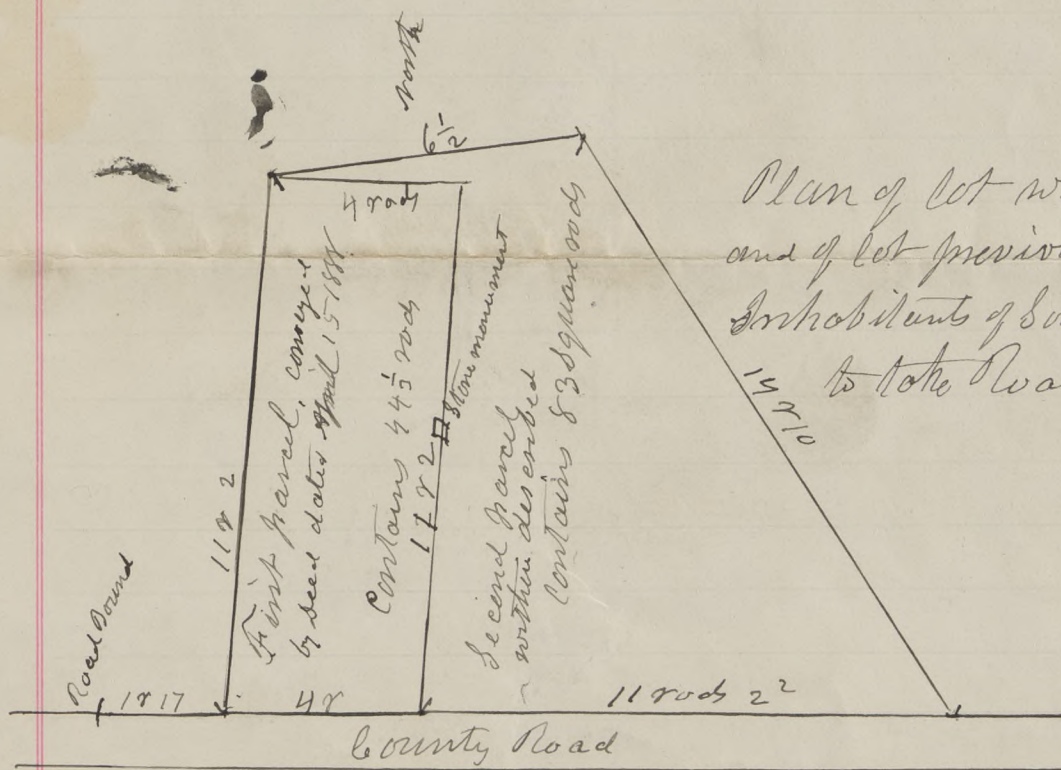 north
6 1/2
4 rods
Plan of lot w
and of lot previou
Inhabitants of So
to take Roa
11 r 2
First parcel, conveyed
by deed dated April 15 188
Contains 44 1/3 rods
r 2
Stone monument
Second parcel
within described
Contains 83 square rods
14
Road Bound
1 r 17
4 r
11 rods 2 2
County Road